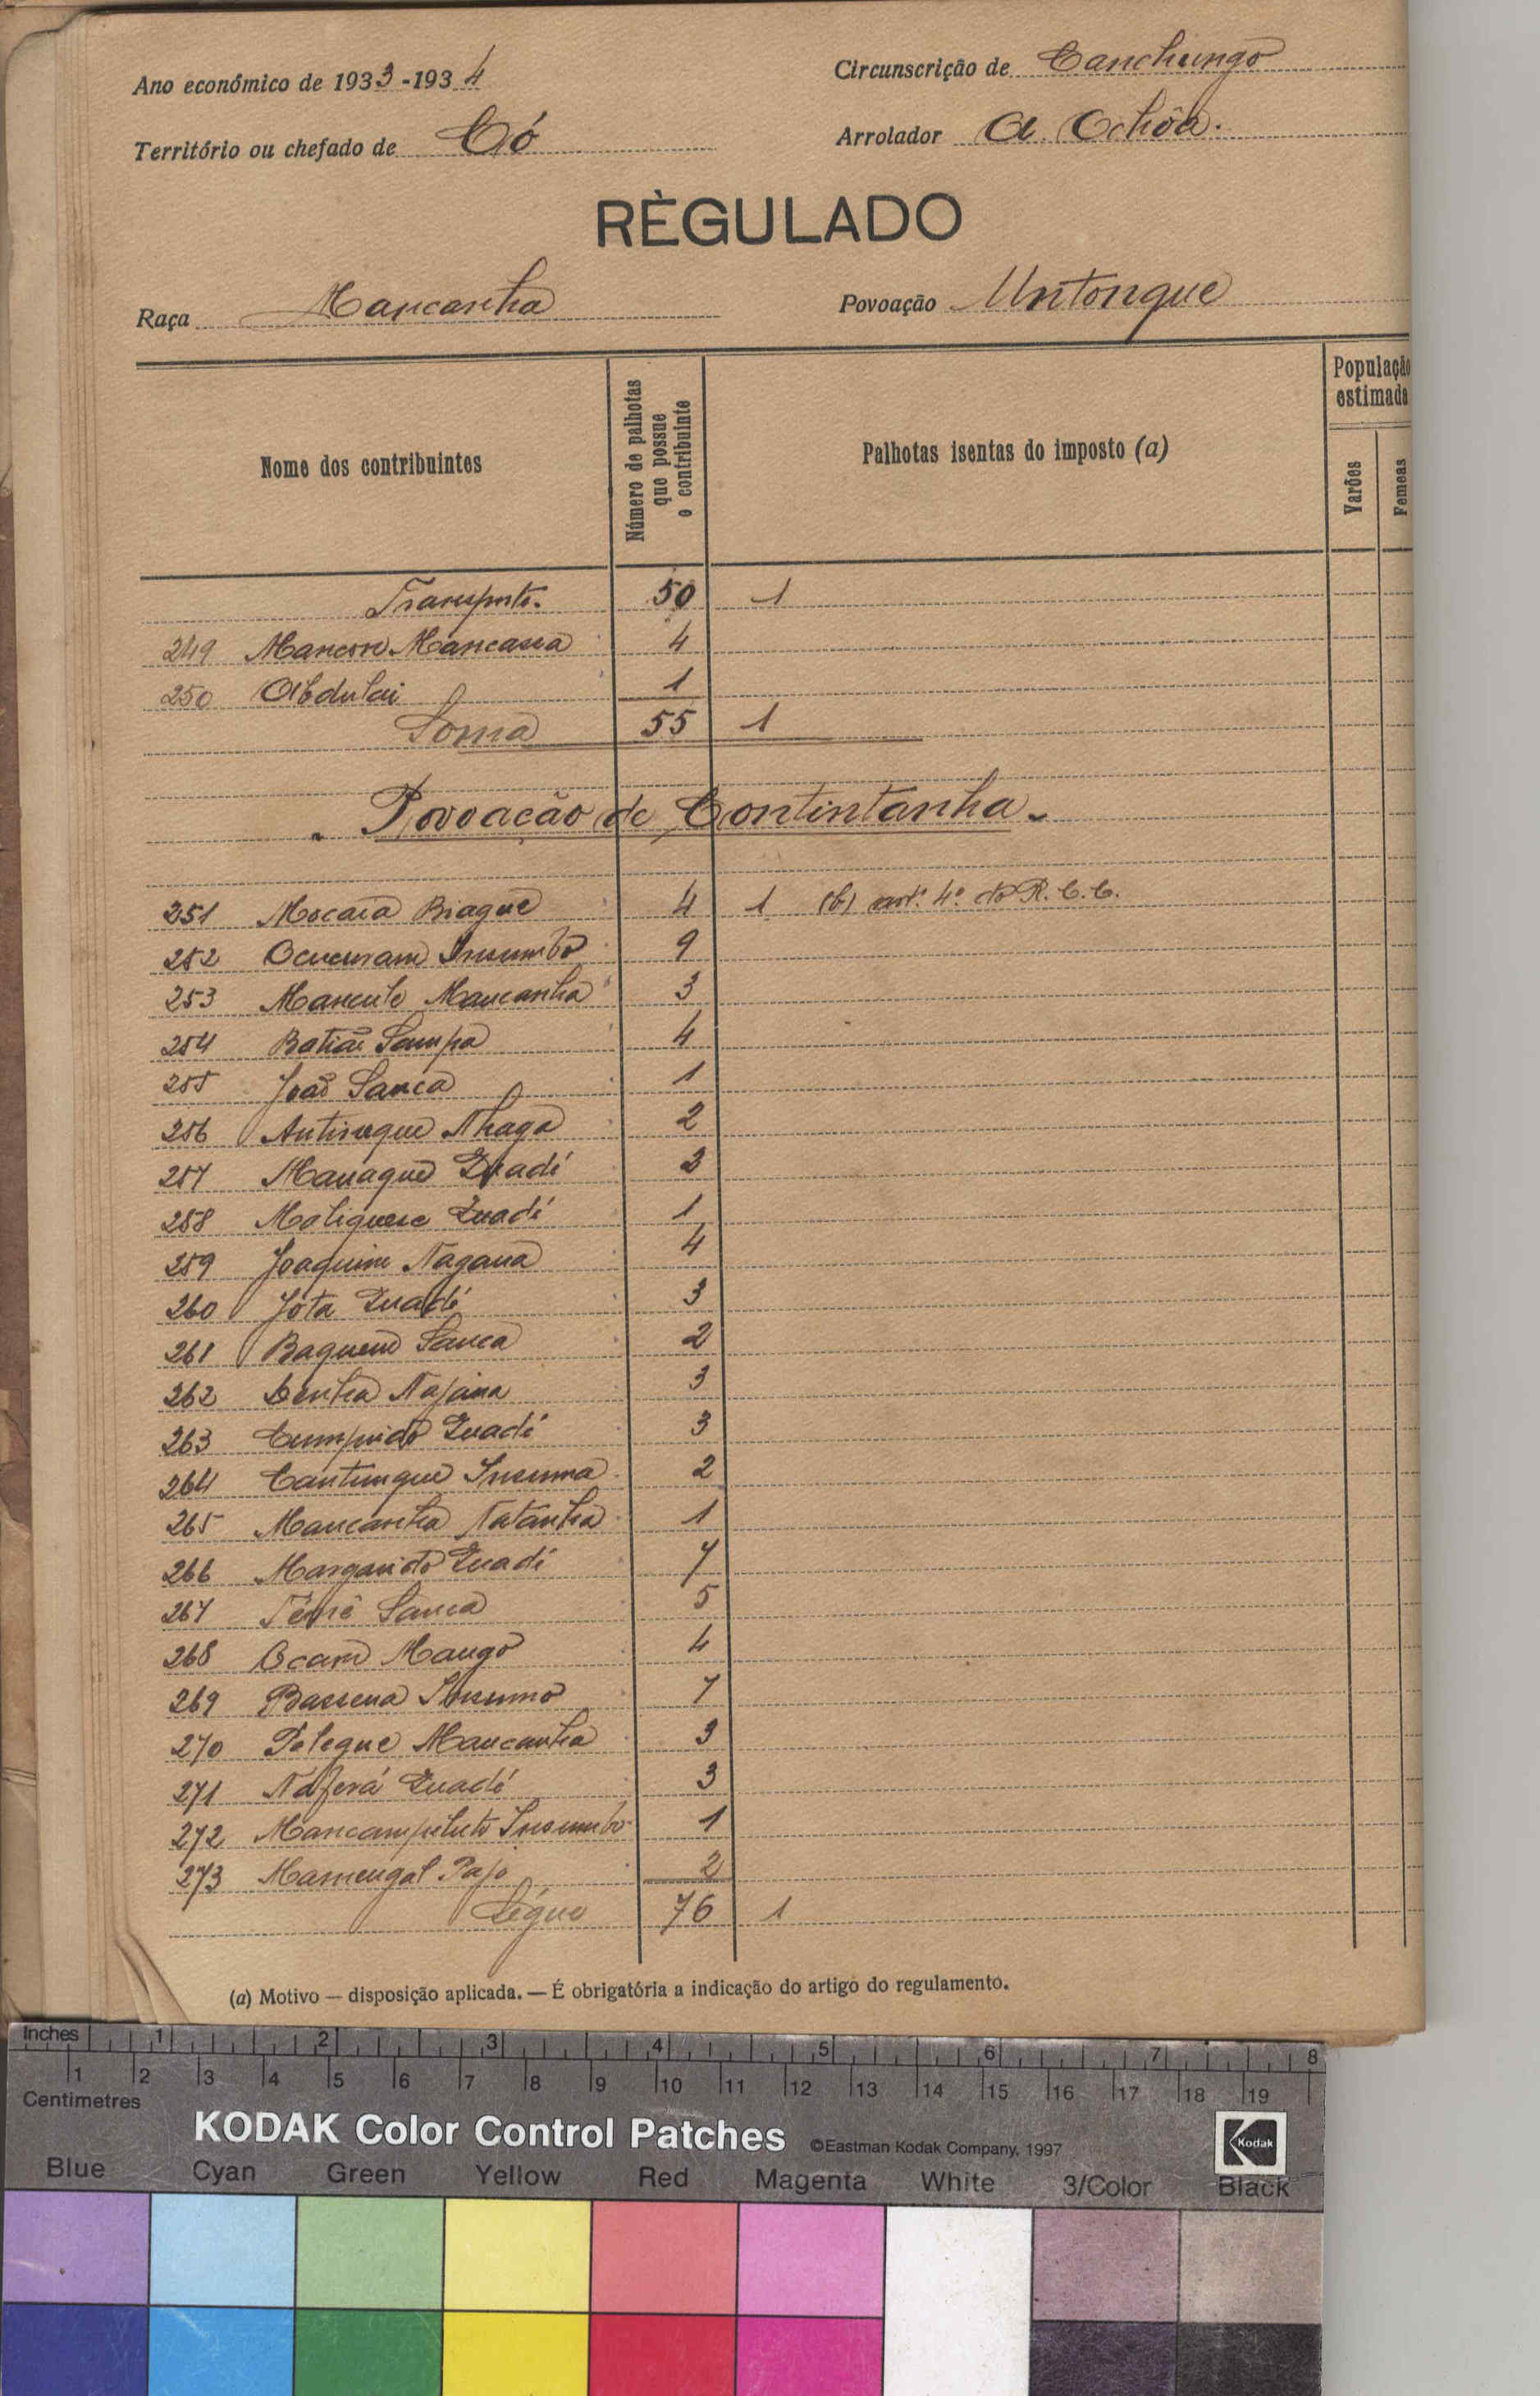 Ano económico de 1933-1934
Circunscrição de Canchungo
Território ou chefado de Có
Arrolador A. Ochôa.
RÈGULADO
Raça Mancanha
Povoação Untongue
Nome dos contribuintes
Número de palhotas que possue o contribuinte
Palhotas isentas do imposto (a)
População estimada
Varões
Femeas
Transporte. 50 1
249 Mancore Mancassa 4
250 Abdulai 1
Soma 55 1
Povoação de Contintanha.
251 Mocaia Biague 4 1 (b) art.º 4.º do R. C. C.
252 Insumbo 9
253 Mancule Mancanha 3
254 Batiã Sampa 4
255 João Sanca 1
256 Nhaga 2
257 Manague Quadé 3
258 Quadé 1
259 Joaquim Nagana 4
260 Jóta Quadé 3
261 Baquem Sanca 2
262 Najana 3
263 Cumprido Quadé 3
264 Cantungue Insuma 2
265 Mancanha Natanha 1
266 Margarido Quadé 7
267 Sanca 5
268 Ocam Mango 4
269 Bassena Insumo 7
270 Pelegue Mancanha 3
271 Naferá Quadé 3
272 Insumbo 1
273 Mamengal Pajo 2
Ségue 76 1
(a) Motivo — disposição aplicada. — É obrigatória a indicação do artigo do regulamento.
Inches 1 2 3 4 5 6 7 8
1 2 3 4 5 6 7 8 9 10 11 12 13 14 15 16 17 18 19
Centimetres
KODAK Color Control Patches ©Eastman Kodak Company, 1997 Kodak
Blue Cyan Green Yellow Red Magenta White 3/Color Black